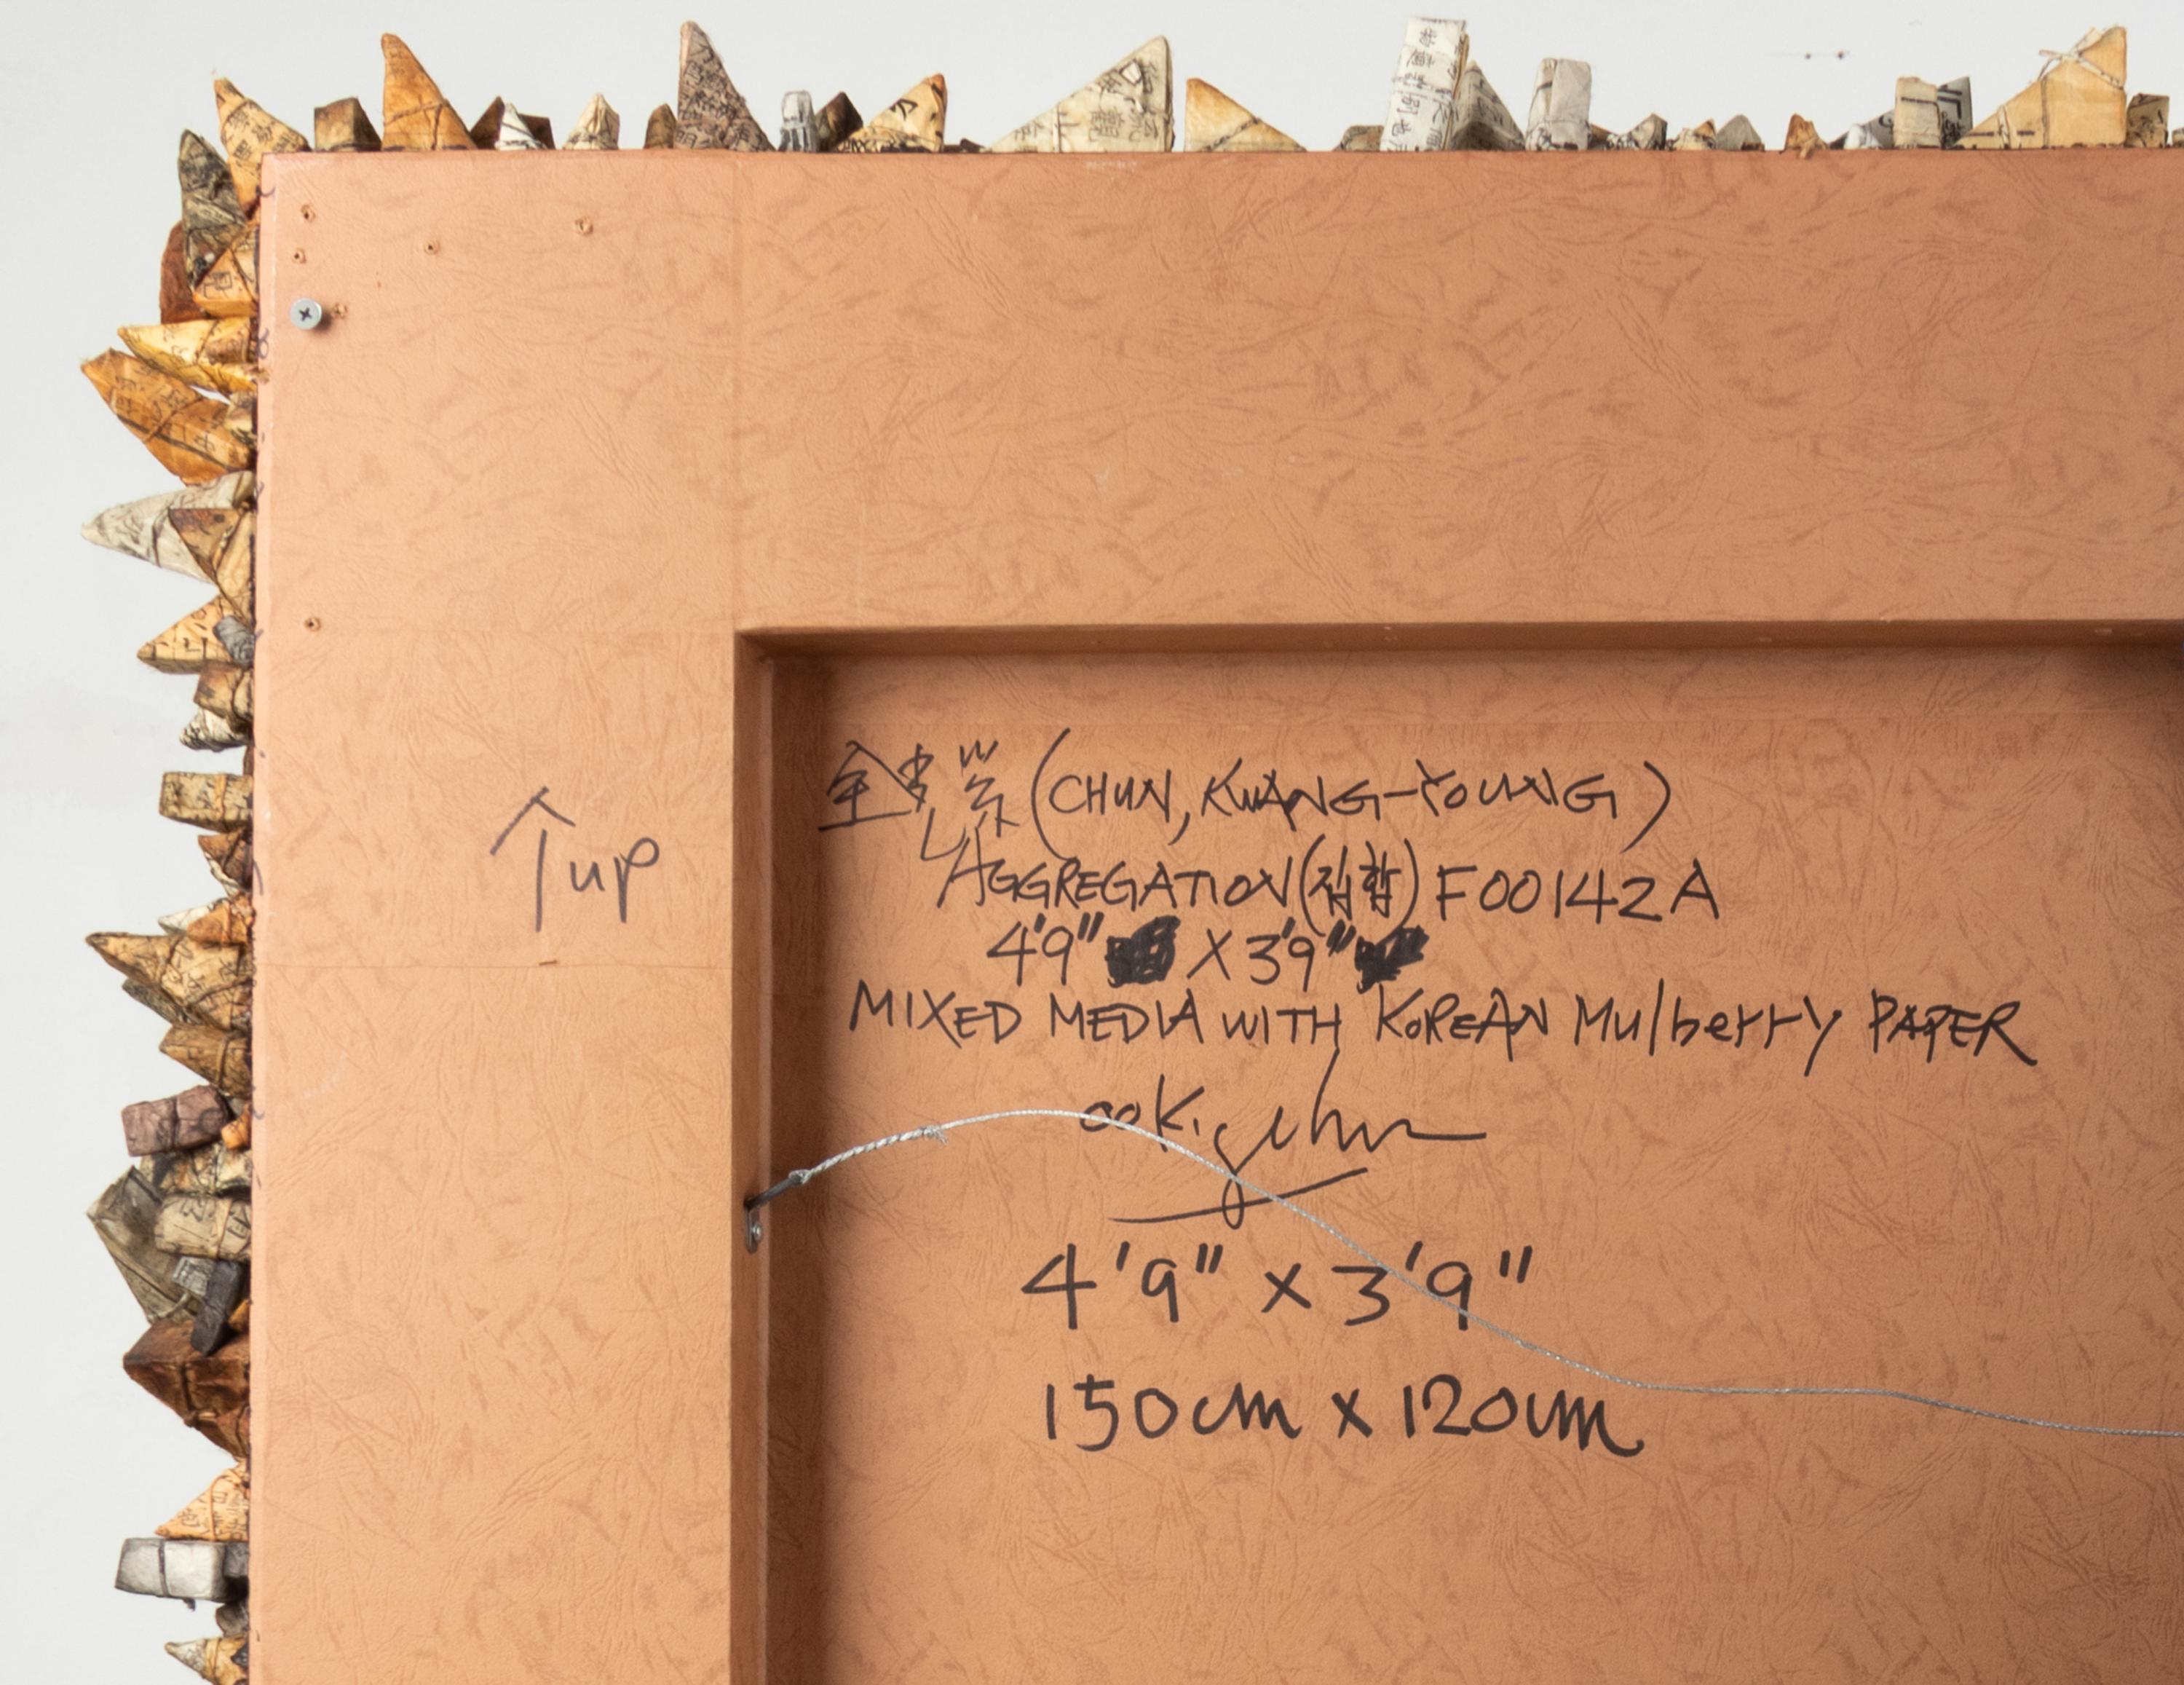 ↑up
全光榮(CHUN, KWANG-YOUNG)
AGGREGATION(집합) F00142A
4'9" X 3'9"
MIXED MEDIA WITH KOREAN Mulberry PAPER
00 K.y chun
4'9" x 3'9"
150cm x 120cm